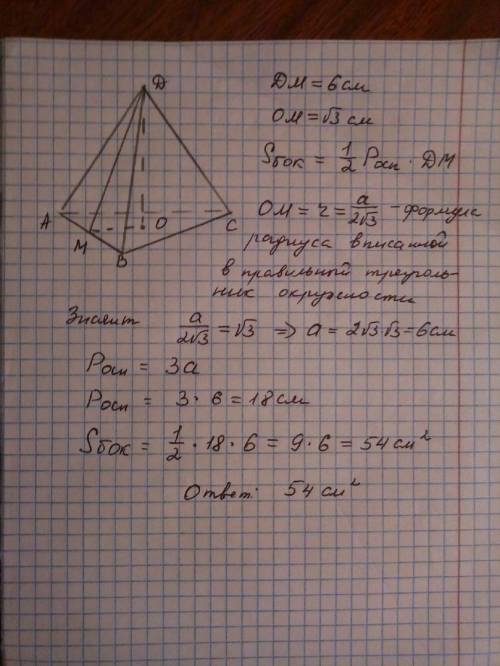 D
A
M
B
O
C
DM = 6 см
OM = √3 см
Sбок = 1/2 Pосн · DM
OM = r = a/2√3 - формула
радиуса вписанной
в правильный треуголь-
ник окружности
Значит a/2√3 = √3 => a = 2√3·√3 = 6 см
Pосн = 3a
Pосн = 3 · 6 = 18 см
Sбок = 1/2 · 18 · 6 = 9 · 6 = 54 см²
Ответ: 54 см²